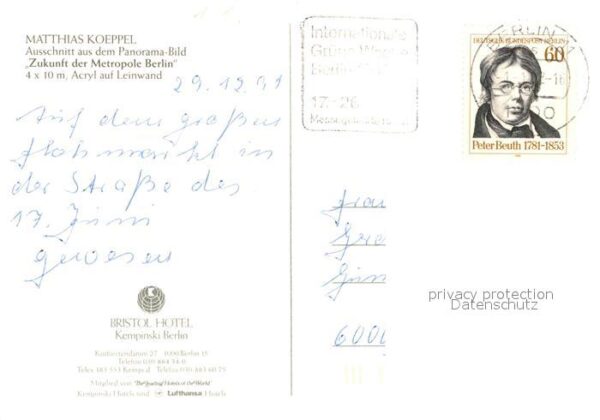 MATTHIAS KOEPPEL
Ausschnitt aus dem Panorama-Bild
„Zukunft der Metropole Berlin“
4 x 10 m, Acryl auf Leinwand
29.12.91
Auf dem großen
Flohmarkt in
der Straße des
17. Juni
gewesen
BRISTOL HOTEL
Kempinski Berlin
Kurfürstendamm 27 · 1000 Berlin 15
Mitglied von "The Leading Hotels of the World"
Kempinski Hotels und Lufthansa Hotels
Internationale
Grüne Woche
Berlin
17.-26
BERLIN
DEUTSCHE BUNDESPOST BERLIN
60
Peter Beuth 1781-1853
privacy protection
Datenschutz